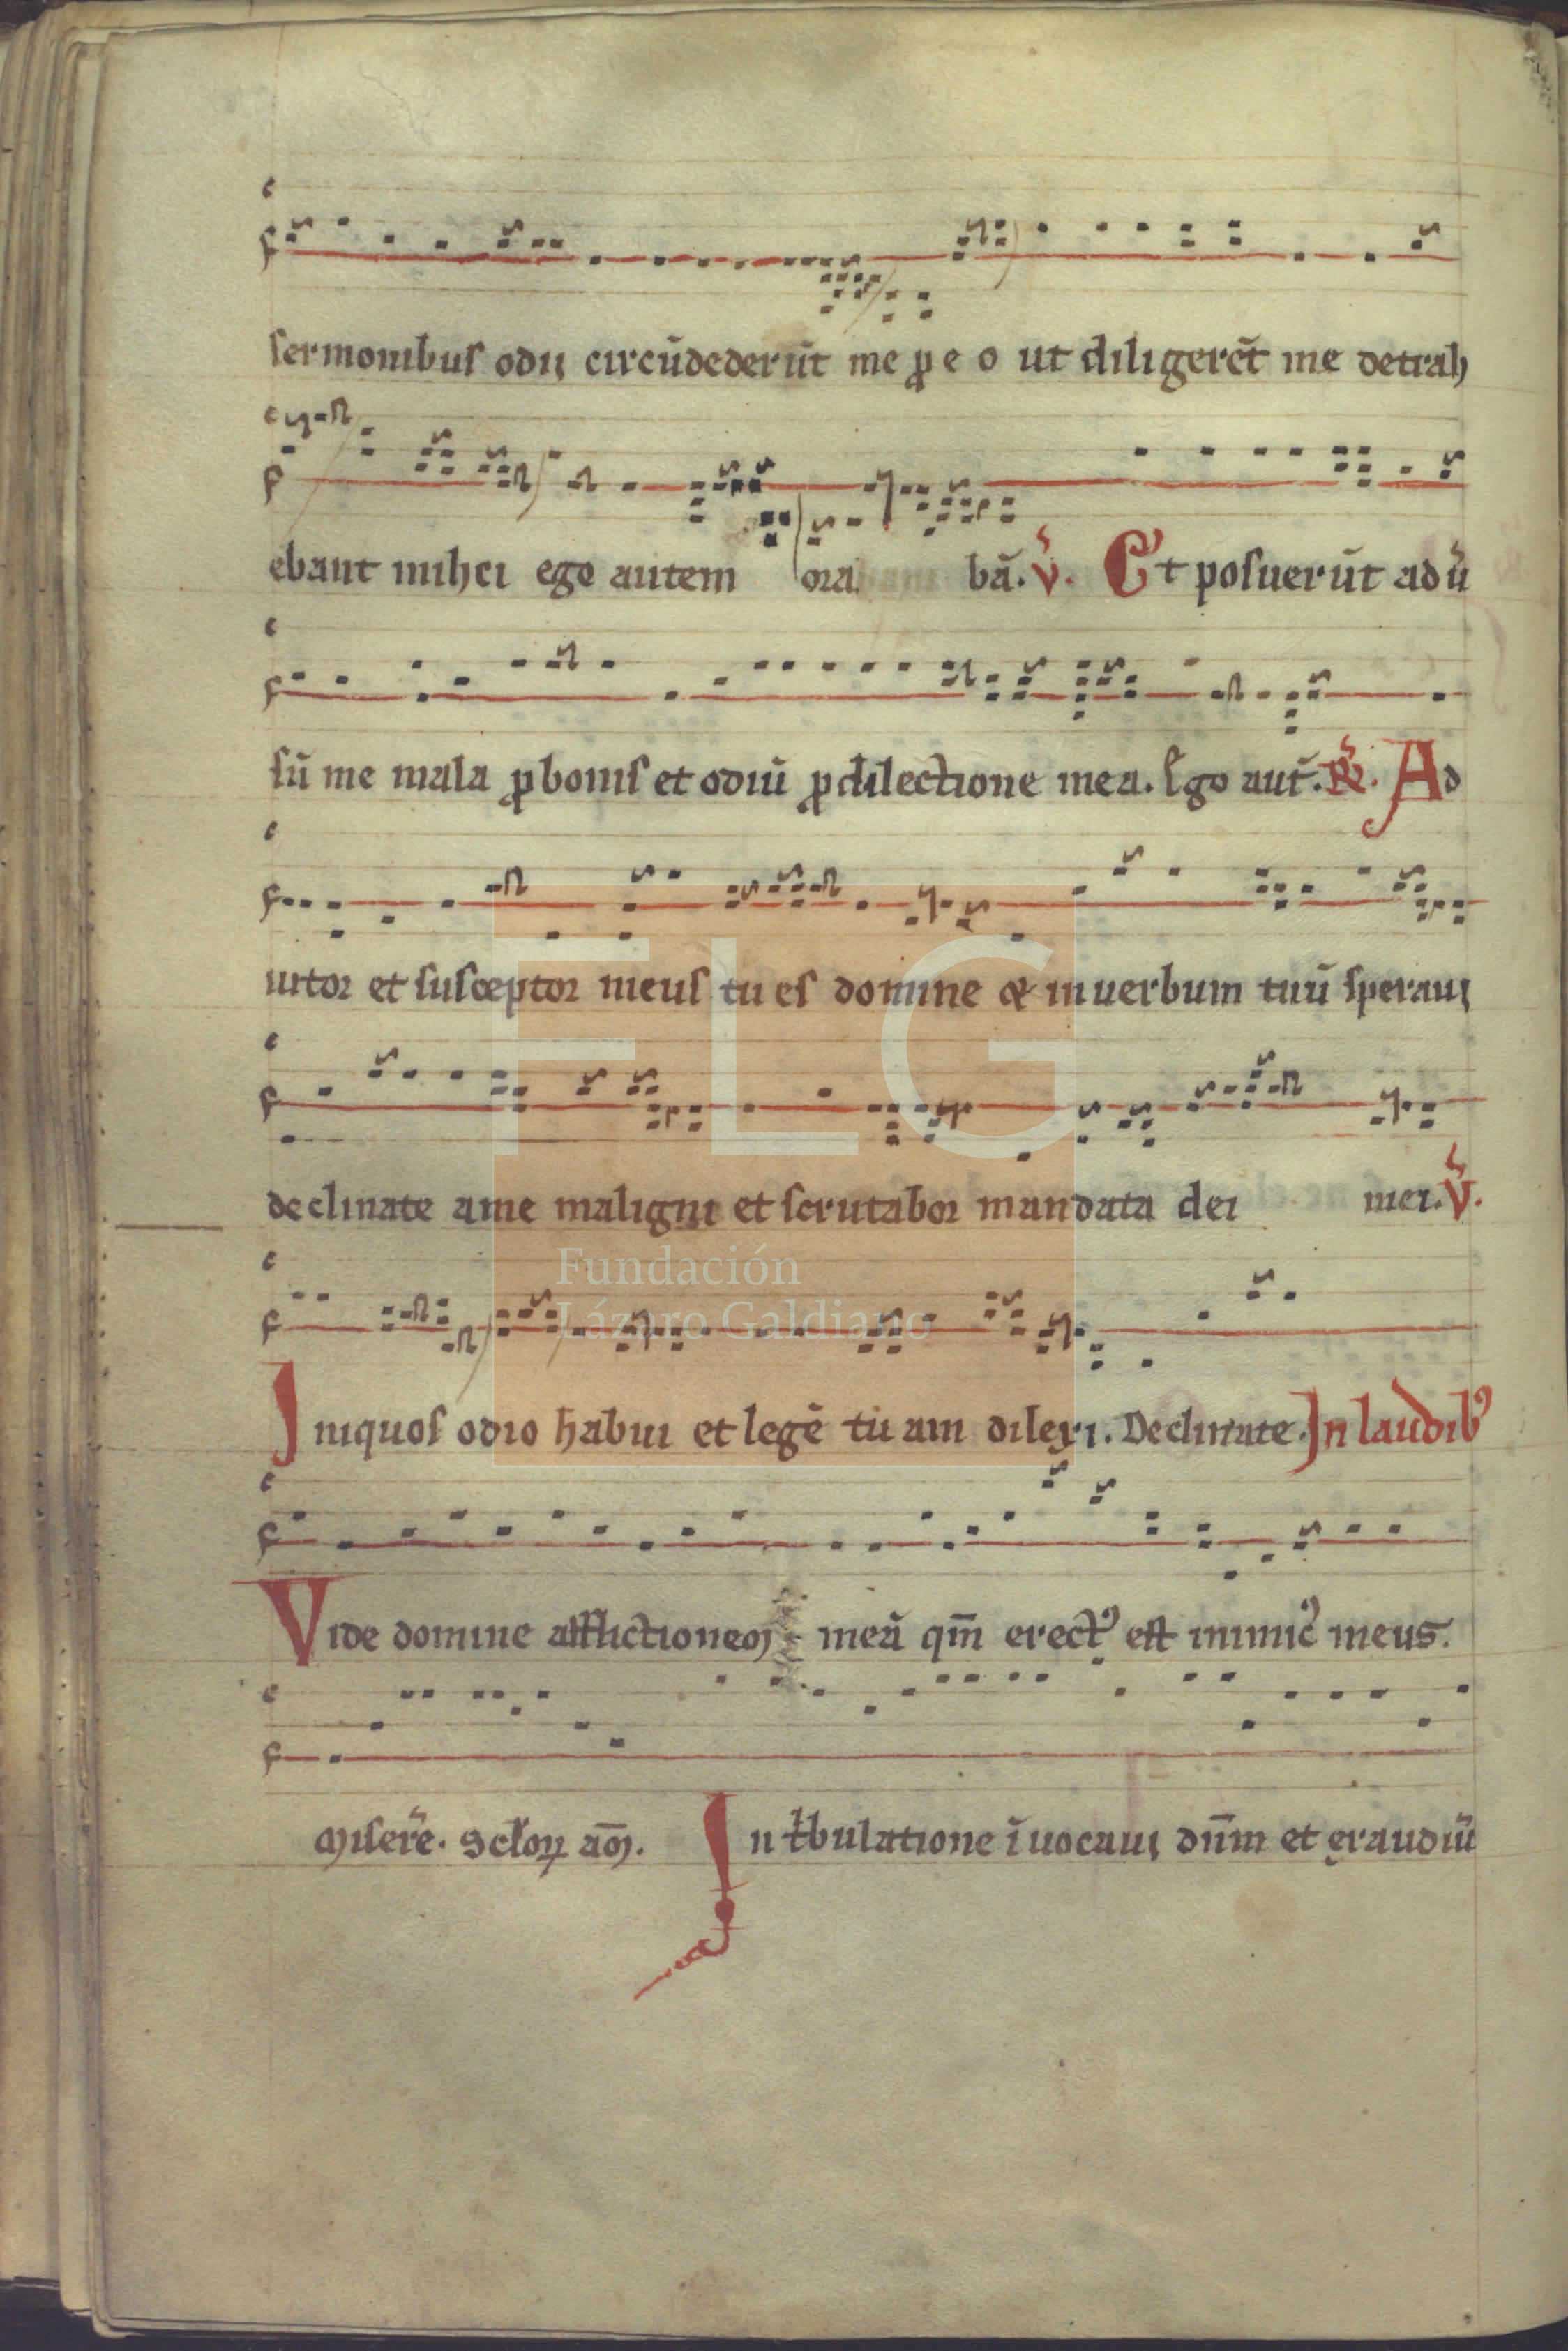 sermonibus odii circūdederūt me ꝓ e o ut diligerēt me detrah
ebant mihci ego autem ora bā. V. Et posuerūt adū
sū me mala ꝓ bonis et odiū ꝓ dilectione mea. Ego aut̄. R. Ad
iutor et susceptor meus tu es domine & in uerbum tuū speraui
declinate a me maligni et scrutabor mandata dei mei. V.
Iniquos odio habui et legē tu am dilexi. Declinate. In laudibꝰ
Vide domine afflictionem meā qm̄ erectꝰ est inimicꝰ meus.
Misere. Sc̄loꝝ am̄. In tͥbulatione īuocaui dn̄m et exaudiū
FLG
Fundación
Lázaro Galdiano